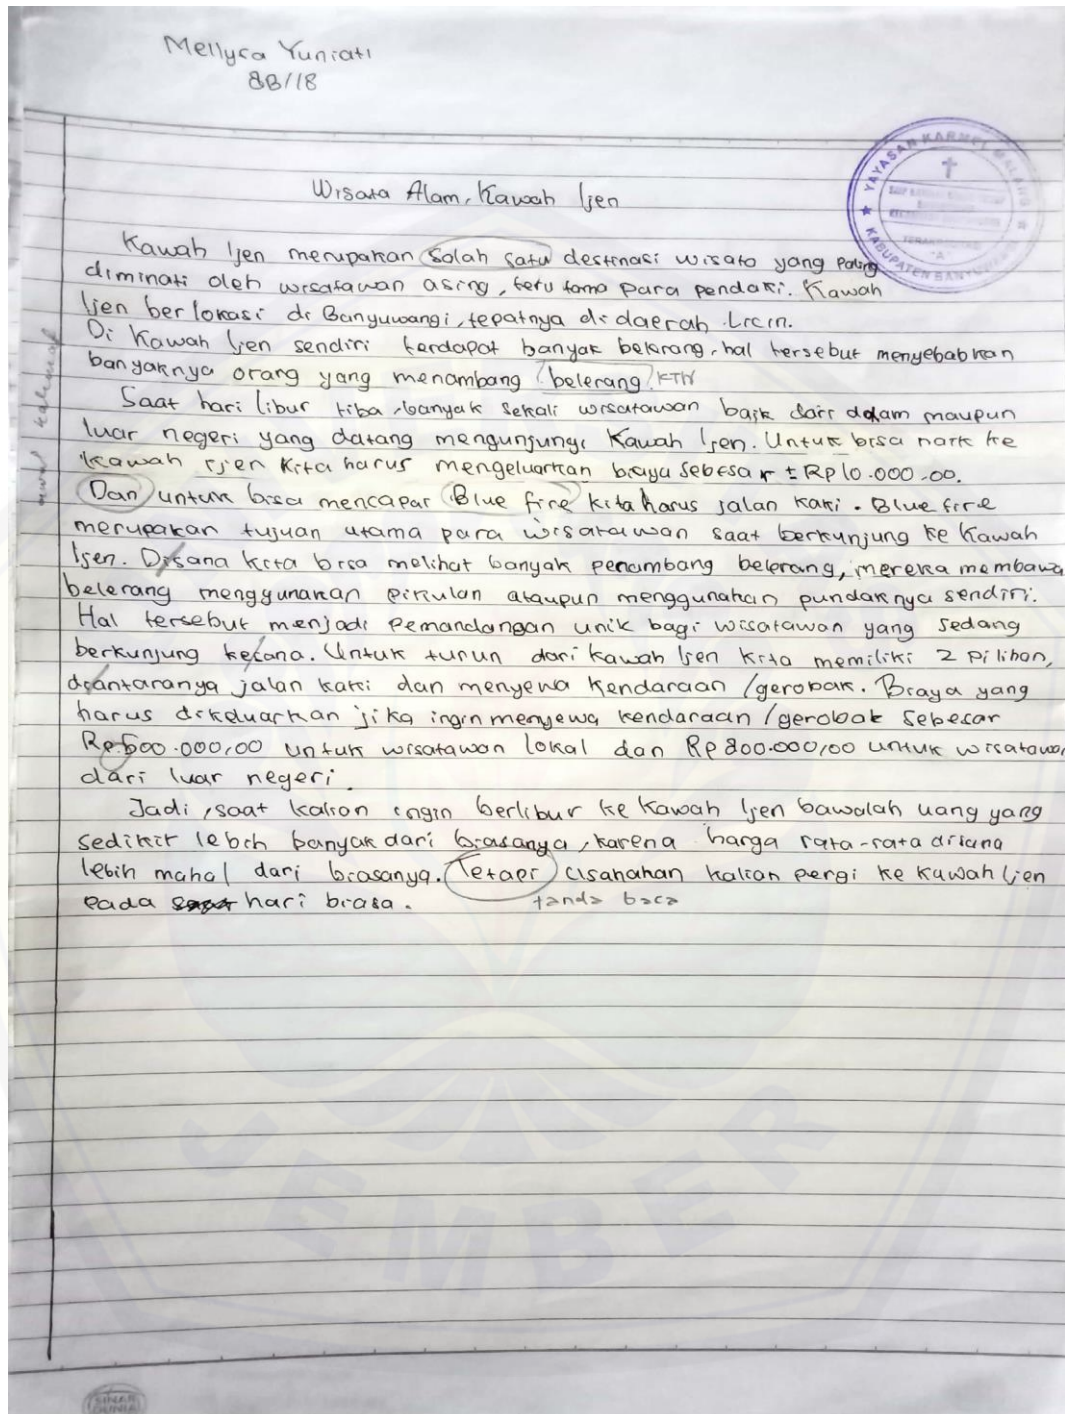 Mellysa Yuniati
8B/18
YAYASAN KARMEL MALANG
KABUPATEN
TERAKREDITASI
"A"
Wisata Alam, Kawah Ijen
Kawah Ijen merupakan salah satu destinasi wisata yang paling
diminati oleh wisatawan asing, terutama para pendaki. Kawah
Ijen berlokasi di Banyuwangi, tepatnya di daerah Licin.
Di Kawah Ijen sendiri terdapat banyak belerang, hal tersebut menyebabkan
banyaknya orang yang menambang belerang. KTW
Saat hari libur tiba, banyak sekali wisatawan baik dari dalam maupun
luar negeri yang datang mengunjungi Kawah Ijen. Untuk bisa naik ke
Kawah Ijen kita harus mengeluarkan biaya sebesar ± Rp 10.000.00.
Dan untuk bisa mencapai Blue fire kita harus jalan kaki. Blue fire
merupakan tujuan utama para wisatawan saat berkunjung ke Kawah
Ijen. Disana kita bisa melihat banyak penambang belerang, mereka membawa
belerang menggunakan pikulan ataupun menggunakan pundaknya sendiri.
Hal tersebut menjadi pemandangan unik bagi wisatawan yang sedang
berkunjung kesana. Untuk turun dari kawah Ijen kita memiliki 2 pilihan,
diantaranya jalan kaki dan menyewa kendaraan /gerobak. Biaya yang
harus dikeluarkan jika ingin menyewa kendaraan /gerobak sebesar
Rp.600.000,00 untuk wisatawan lokal dan Rp 800.000,00 untuk wisatawan
dari luar negeri.
Jadi, saat kalian ingin berlibur ke Kawah Ijen bawalah uang yang
sedikit lebih banyak dari biasanya, karena harga rata-rata disana
lebih mahal dari biasanya. Tetapi usahakan kalian pergi ke Kawah Ijen
pada hari biasa.
tanda baca
awal kalimat
JEMBER
SINAR
DUNIA